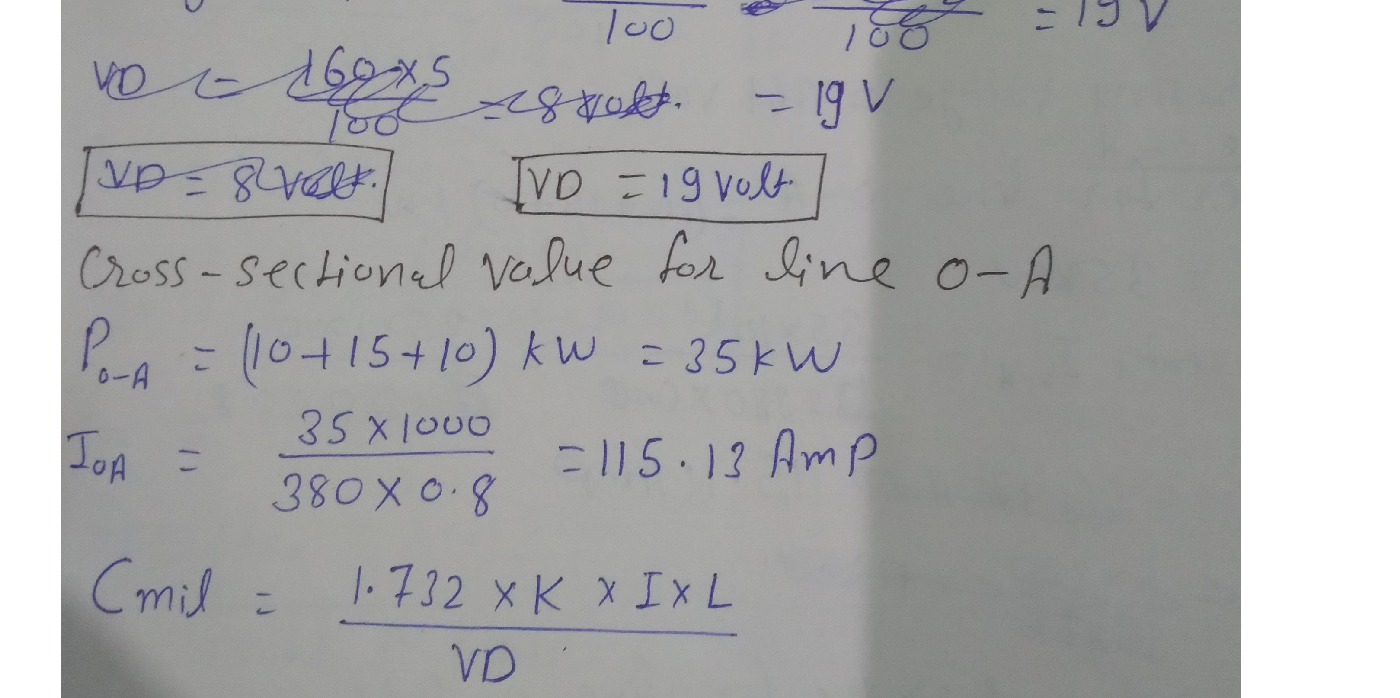 100 100 = 19 V
VD = 160 × 5 / 100 = 8 volt. = 19 V
VD = 8 volt. VD = 19 volt.
Cross-sectional value for line O-A
P O-A = (10+15+10) kW = 35 kW
I OA = 35 × 1000 / 380 × 0.8 = 115.13 Amp
Cmil = 1.732 × K × I × L / VD